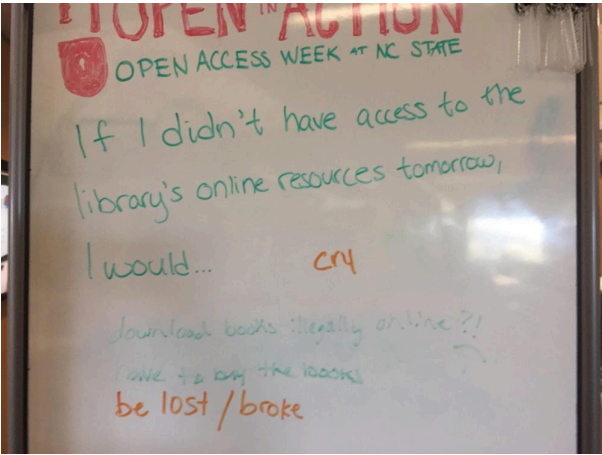 OPEN IN ACTION
OPEN ACCESS WEEK AT NC STATE
If I didn't have access to the
library's online resources tomorrow,
I would...
cry
download books illegally online?!
have to buy the books
be lost / broke